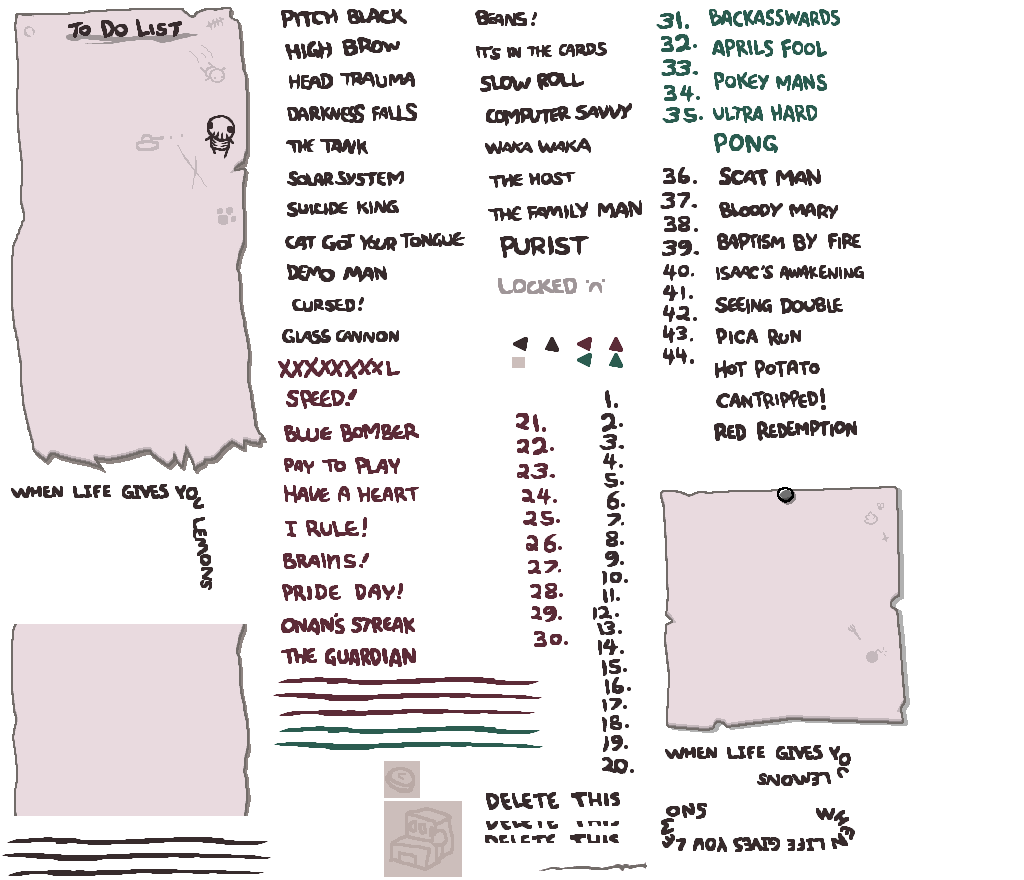 TO DO LIST
WHEN LIFE GIVES YOU LEMONS
PITCH BLACK
HIGH BROW
HEAD TRAUMA
DARKNESS FALLS
THE TANK
SOLAR SYSTEM
SUICIDE KING
CAT GOT YOUR TONGUE
DEMO MAN
CURSED!
GLASS CANNON
XXXXXXXXL
SPEED!
BLUE BOMBER
PAY TO PLAY
HAVE A HEART
I RULE!
BRAINS!
PRIDE DAY!
ONAN'S STREAK
THE GUARDIAN
BEANS!
IT'S IN THE CARDS
SLOW ROLL
COMPUTER SAVVY
WAKA WAKA
THE HOST
THE FAMILY MAN
PURIST
LOCKED :'(
21.
22.
23.
24.
25.
26.
27.
28.
29.
30.
1.
2.
3.
4.
5.
6.
7.
8.
9.
10.
11.
12.
13.
14.
15.
16.
17.
18.
19.
20.
DELETE THIS
DELETE THIS
DELETE THIS
31.
32.
33.
34.
35.
36.
37.
38.
39.
40.
41.
42.
43.
44.
BACKASSWARDS
APRILS FOOL
POKEY MANS
ULTRA HARD
PONG
SCAT MAN
BLOODY MARY
BAPTISM BY FIRE
ISAAC'S AWAKENING
SEEING DOUBLE
PICA RUN
HOT POTATO
CANTRIPPED!
RED REDEMPTION
WHEN LIFE GIVES YOU
LEMONS
WHEN LIFE GIVES YOU LEMONS